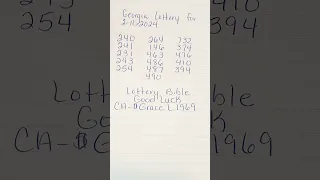 Georgia Lottery for
2-11-2024
240 264 732
241 196 374
291 463 476
243 486 410
254 487 394
490
Lottery Bible
Good Luck
CA-$Grace L1969